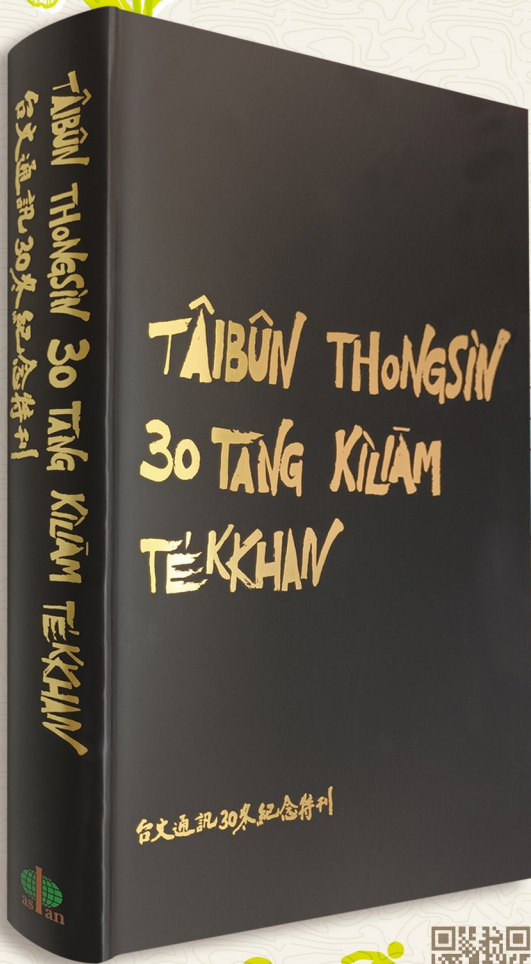 TÂIBÛN THONGSÌN 30 TANG KÌLIĀM TE̍KKHAN
台文通訊30冬紀念特刊
asian
TÂIBÛN THONGSÌN
30 TANG KÌLIĀM
TE̍KKHAN
台文通訊30冬紀念特刊